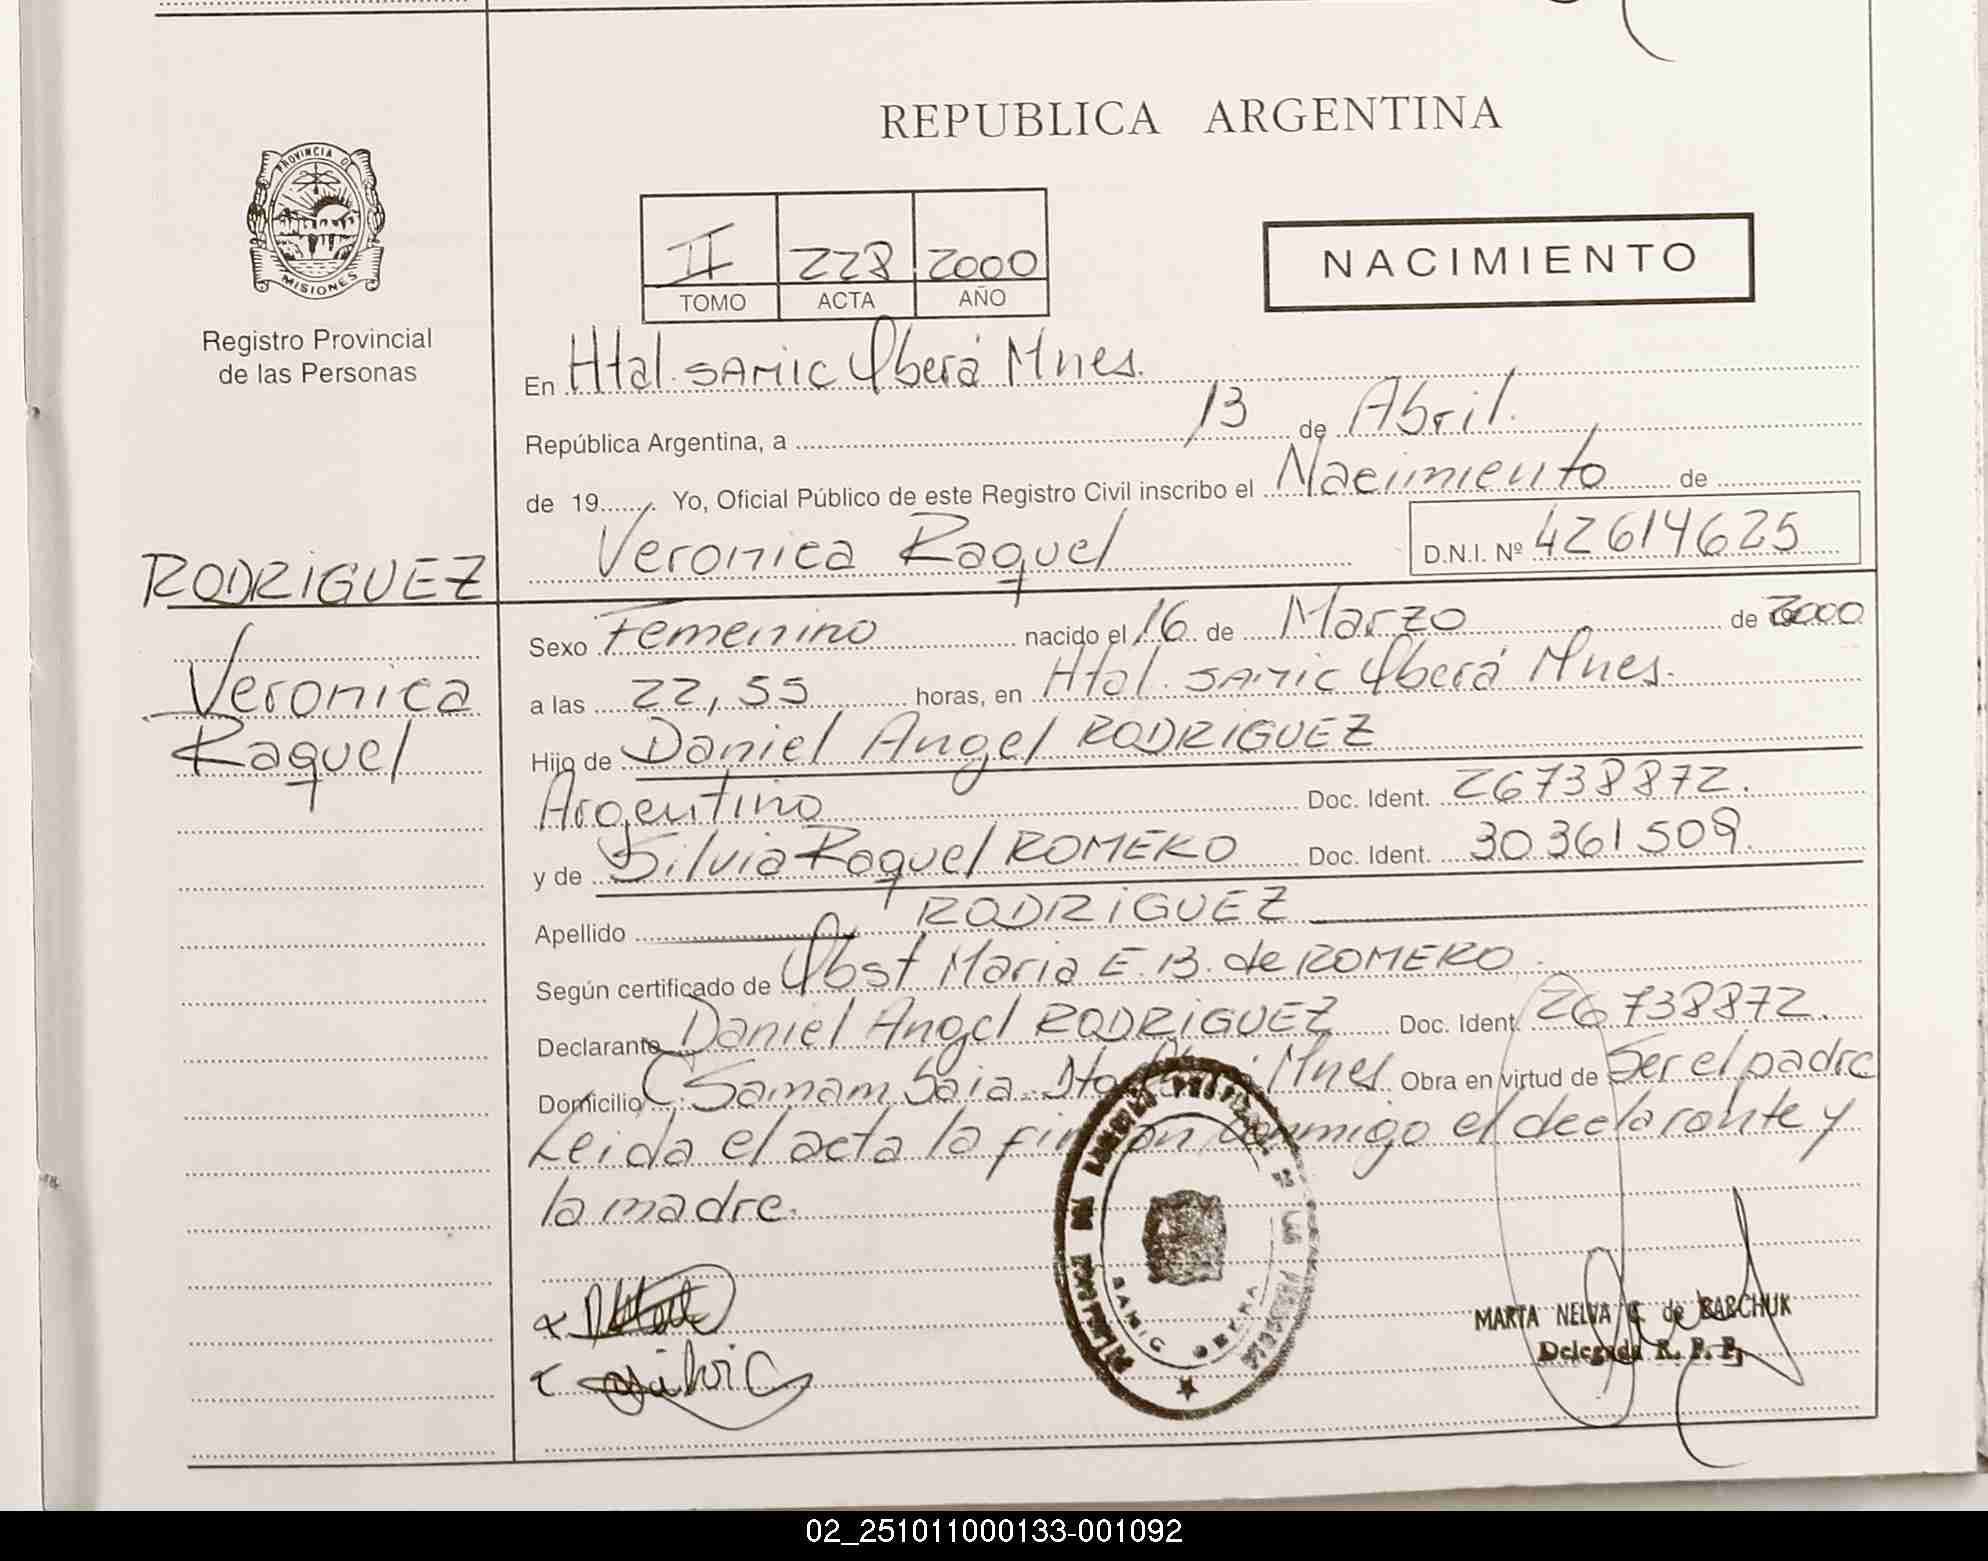 REPUBLICA ARGENTINA
PROVINCIA DE
MISIONES
Registro Provincial
de las Personas
II 228 2000
TOMO ACTA AÑO
NACIMIENTO
En Htal. SAMIC Oberá Mnes.
República Argentina, a 13 de Abril.
de 19 Yo, Oficial Público de este Registro Civil inscribo el Nacimiento de
Veronica Raquel D.N.I. Nº 42614625
RODRIGUEZ
Veronica
Raquel
Sexo Femenino nacido el 16 de Marzo de 2000
a las 22,55 horas, en Htal. SAMIC Oberá Mnes.
Hijo de Daniel Angel RODRIGUEZ
Argentino Doc. Ident. 26738872.
y de Silvia Raquel ROMERO Doc. Ident. 30361509.
Apellido RODRIGUEZ
Según certificado de Obst Maria E. B. de ROMERO.
Declarante Daniel Angel RODRIGUEZ Doc. Ident. 26738872.
Domicilio C. Samam Baia. Dto Mnes Obra en virtud de Ser el padre
Leida el acta la firman conmigo el declarante y
la madre.
Silvia
SAMIC OBERA
MARTA NELVA de BABCHUK
Delegada R. P. P.
02_251011000133-001092